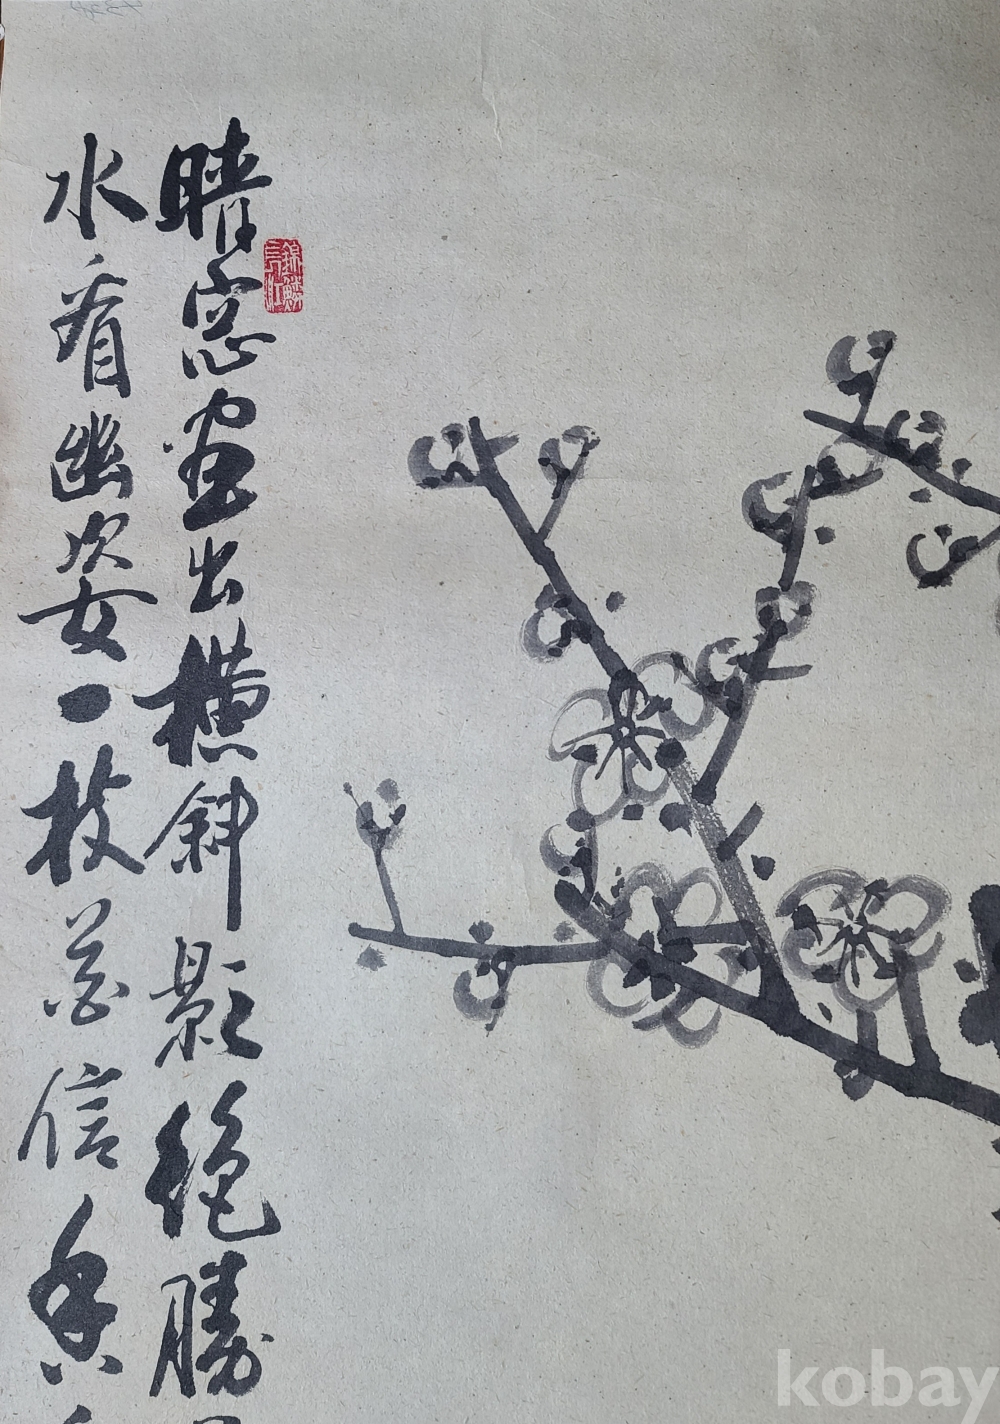 晴窓画出橫斜影絶勝
水看幽姿一枝花信香
kobay